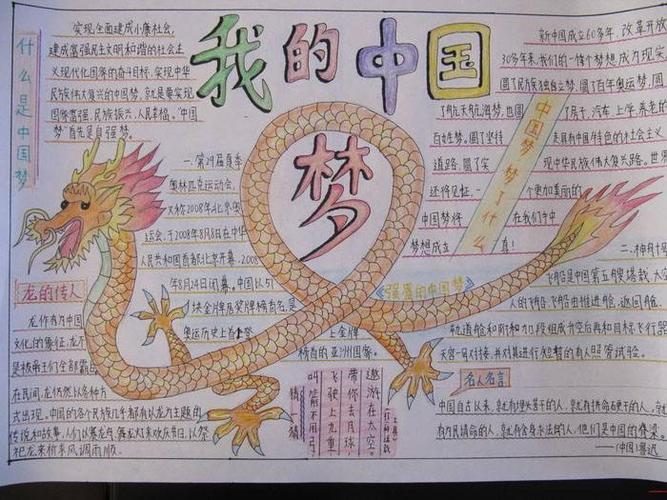 我的中国
梦
什么是中国梦
实现全面建成小康社会,
建成富强民主文明和谐的社会主
义现代化国家的奋斗目标,实现中华
民族伟大复兴的中国梦,就是要实现
国家富强、民族振兴、人民幸福。“中国
梦”首先是自强梦。
一.第29届夏季
奥林匹克运动会,
又称2008年北京奥
运会,于2008年8月8日在中华
人民共和国首都北京开幕,2008
年8月24日闭幕。中国以51
块金牌居奖牌榜首名,是
奥运历史上首
上金牌
榜首的亚洲国家。
新中国成立60多年,改革开放
30多年来,我们的一件个梦想成为现实
圆了民族独立梦,圆了百年奥运梦,圆
了航天航海梦,也圆
了房子、汽车、上学、养老
百姓梦。圆了坚持
走具有中国特色的社会主义
道路,圆了实
现中华民族伟大复兴路。世
还将见证,一
个更加美丽的
中国梦将
在我们手中
梦想成立
真!
中国梦 梦了什么
《强盛的中国梦》
二.神舟十
飞船是中国第五艘载人
人的飞船,飞船由推进舱、返回舱、
轨道舱和附加段组成,升空后再和目标飞行器
天宫一号对接,并对其进行短暂的有人照管试验。
名人名言
中国自古以来,就有埋头苦干的人,就有拼命硬干的人,
有为民请命的人,就有舍身求法的人。他们是中国的脊梁。
——(中国)鲁迅
龙的传人
龙作为中国
文化的象征,龙不
是被帝王们全部霸占
在民间,龙仍然以各种方
式出现。中国的各个民族几乎都有以龙为主题的
传说和故事,人们以赛龙舟、舞龙灯来欢庆节日,以祭
祀龙来祈求风调雨顺。
猜猜
遨游在太空。
带你去月球,
飞驶上九重
叫箭不用弓